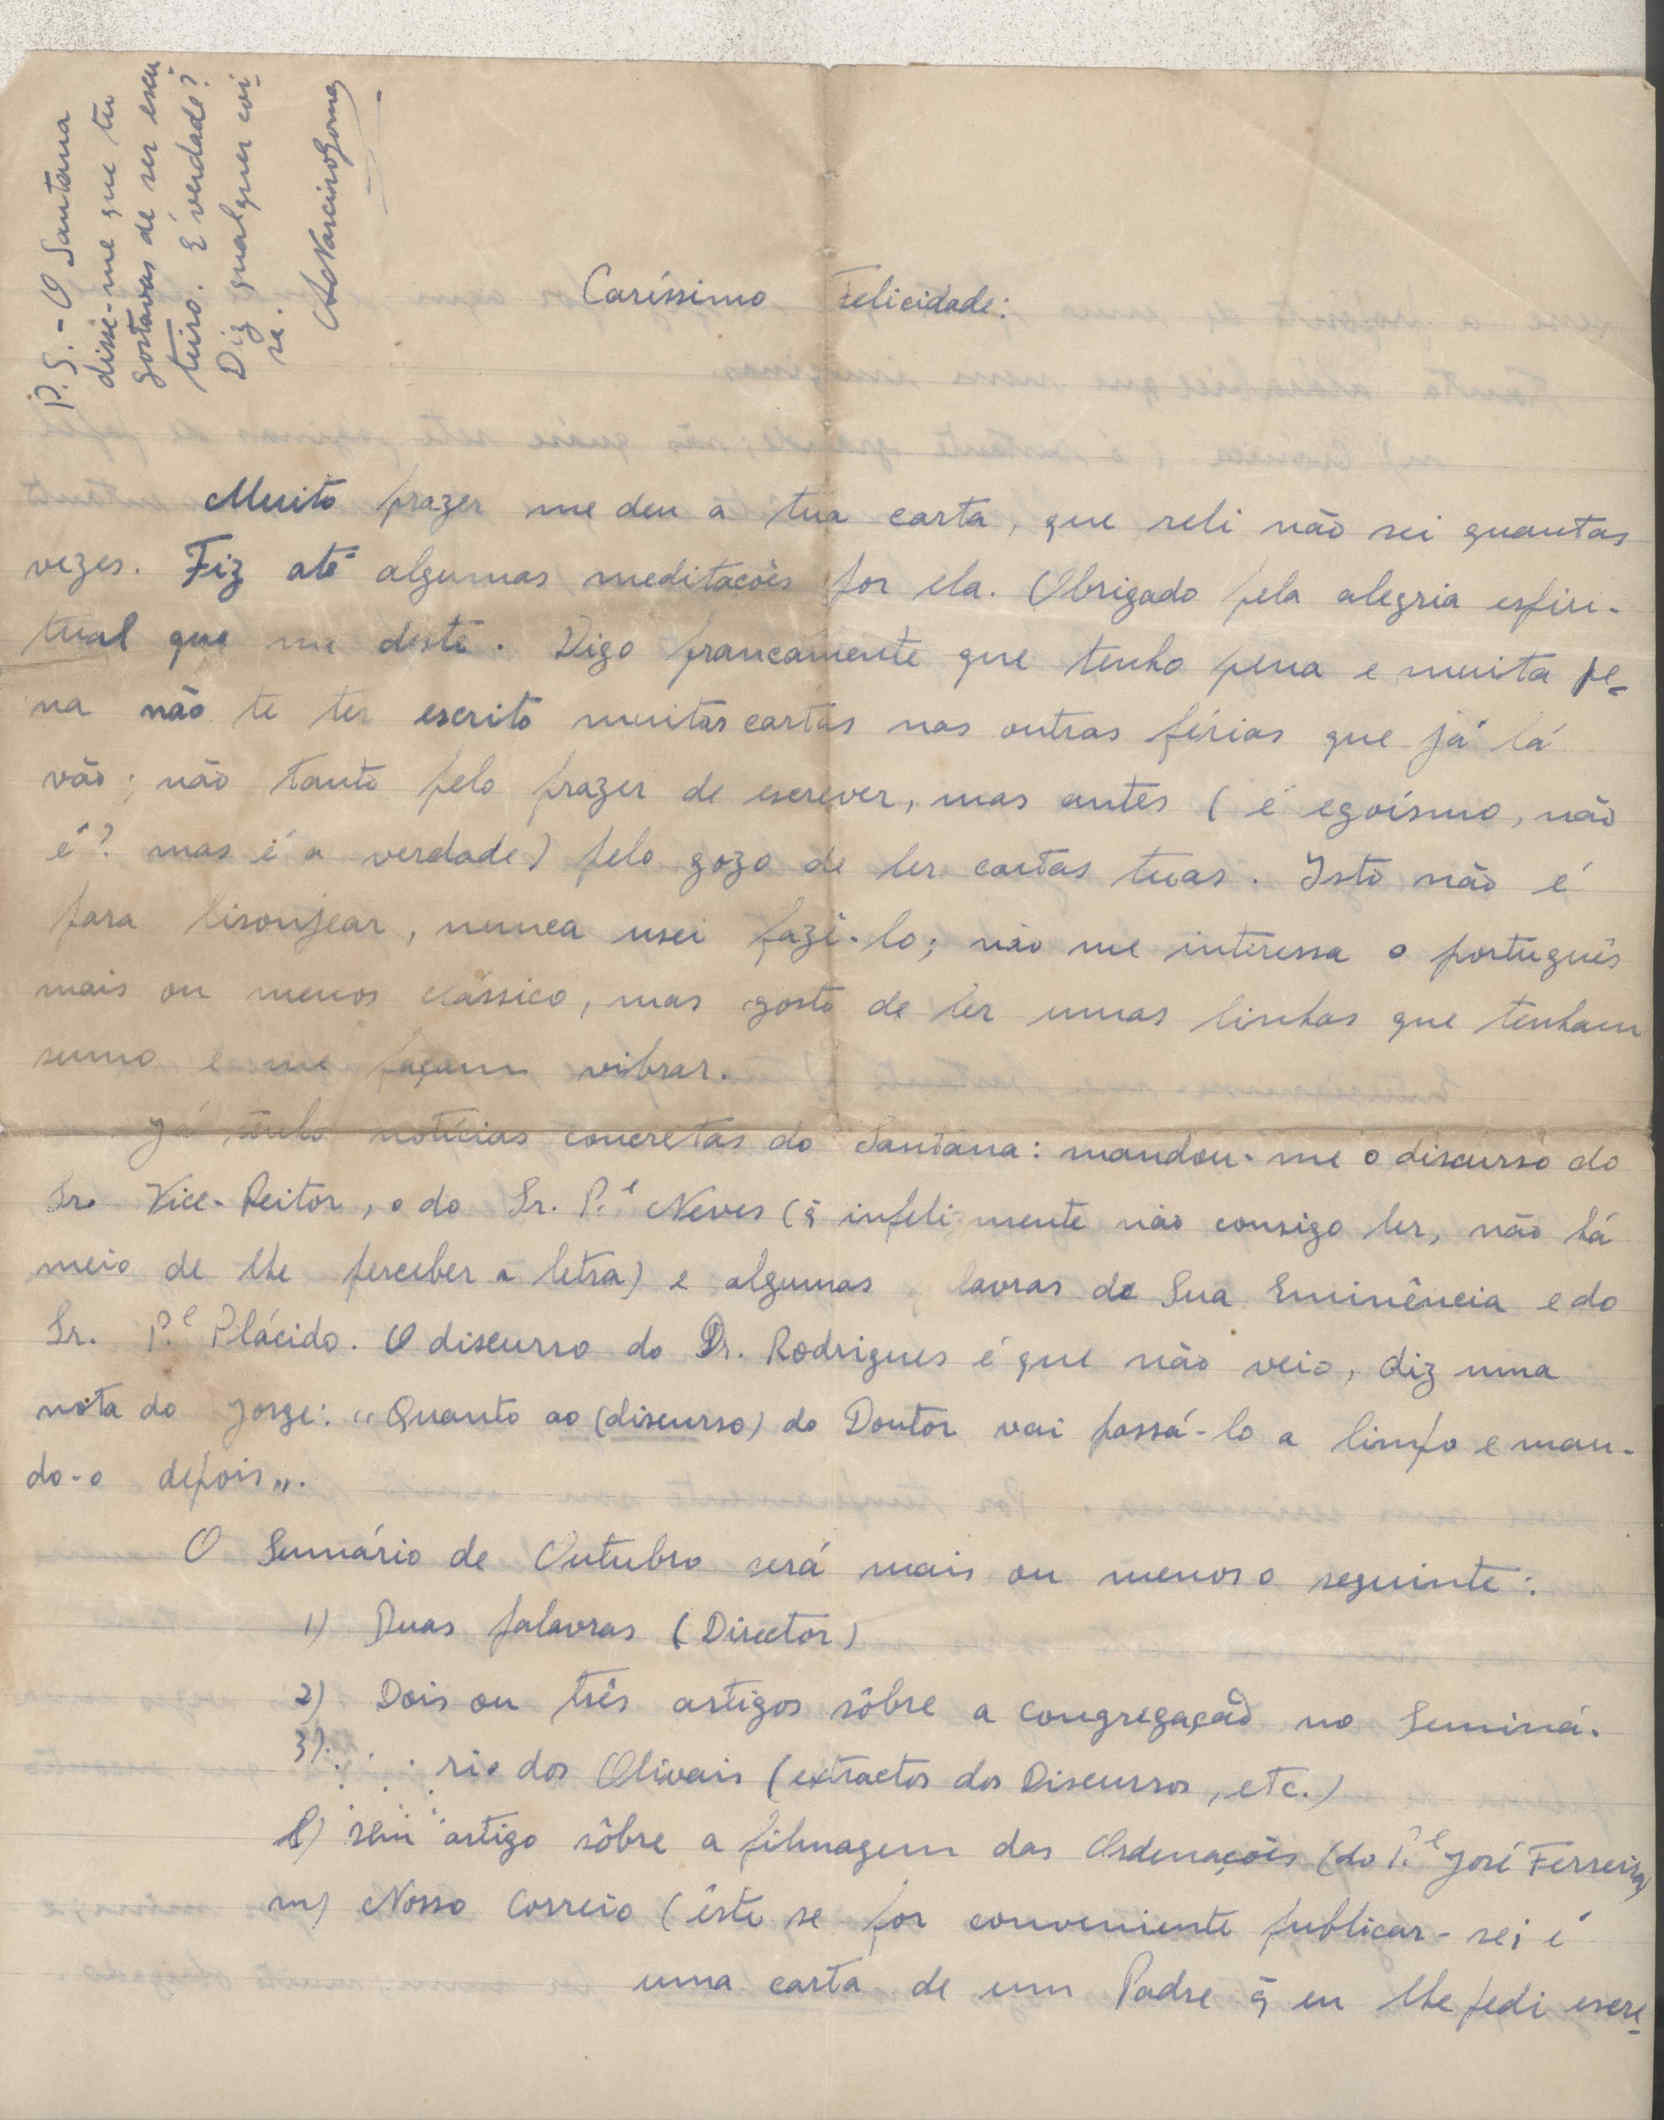 P.S. - O Santana
disse-me que tu
gostavas de ser escu
teiro. É verdade?
Diz qualquer coi-
sa.
Caríssimo Felicidade:
Muito prazer me deu a tua carta, que reli não sei quantas
vezes. Fiz até algumas meditacões por ela. Obrigado pela alegria espiri-
tual que me deste. Digo francamente que tenho pena e muita pe-
na não te ter escrito muitas cartas nas outras férias que já lá
vão; não tanto pelo prazer de escrever, mas antes (é egoísmo, não
é? mas é a verdade) pelo gozo de ler cartas tuas. Isto não é
para lisonjear, nunca usei fazê-lo; não me interessa o português
mais ou menos clássico, mas gosto de ler umas linhas que tenham
sumo e me façam vibrar.
Já tenho notícias concretas do Santana: mandou-me o discurso do
Sr. Vice-Reitor, o do Sr. P.e Neves (q̃ infelimente não consigo ler, não há
meio de lhe perceber a letra) e algumas lavras de Sua Eminência e do
Sr. P.e Plácido. O discurso do Dr. Rodrigues é que não veio, diz uma
nota do Jorge: "Quanto ao (discurso) do Doutor vai passá-lo a limpo e man-
do-o depois".
O Sumário de Outubro será mais ou menos o seguinte:
1) Duas palavras (Director)
2) Dois ou três artigos sôbre a congregação no Seminá-
3) . . . rio dos Olivais (extractos dos Discursos, etc.)
l) Um artigo sôbre a filmagem das Ordenações (do P.e José Ferreira)
m) Nosso Correio (êste se for conveniente publicar-se; é
uma carta de um Padre q̃ eu lhe pedi escre-